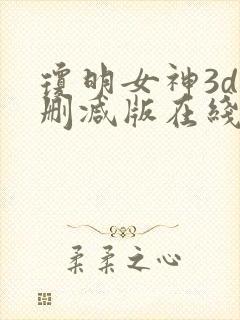 瓊明女神3d
删减版在綫
柔柔之心